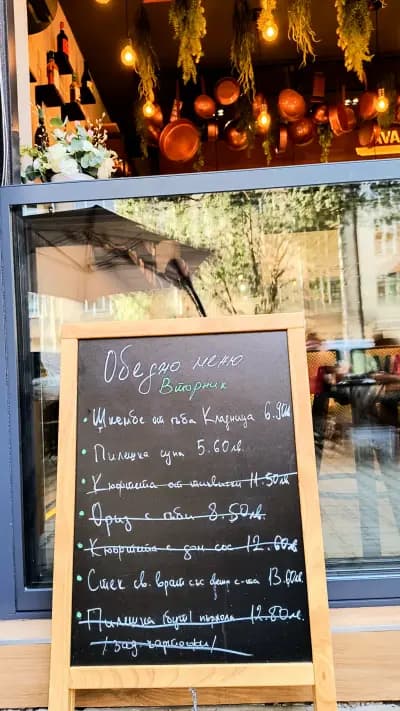 Обедно меню
Вторник
Шкембе от гъба Кладница 6.90лв
Пилешка супа 5.60лв.
Кюфтета от тиквички 11.50лв
Ориз с гъби 8.50лв.
Кюфтета с дом. сос 12.60лв
Стек св. врат със с-та 13.60лв.
Пилешка (бут) пържола 12.80лв.
/зад. картофки/